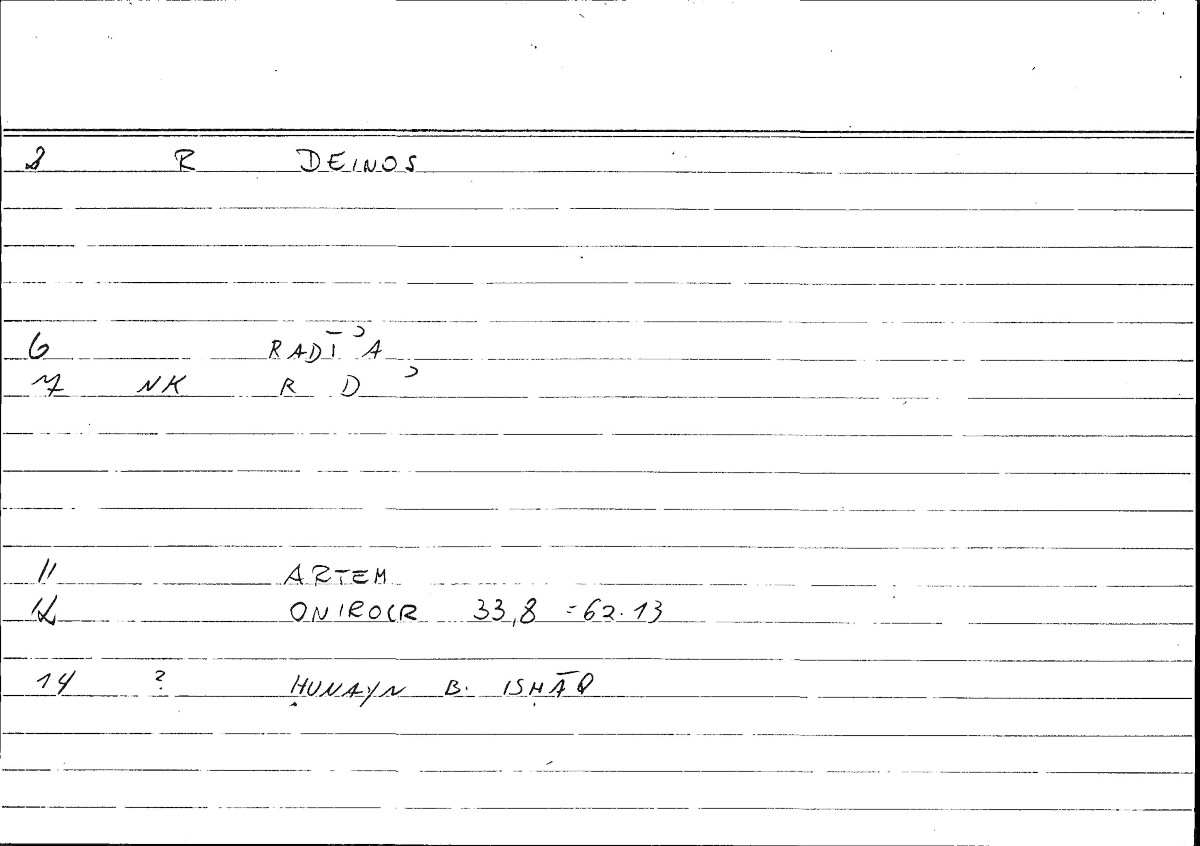 2 R DEINOS
6 RADĪʾA
7 NK R D ʾ
11 ARTEM
12 ONIROCR 33,8 = 62.13
14 ? ḤUNAYN B. ISḤĀQ